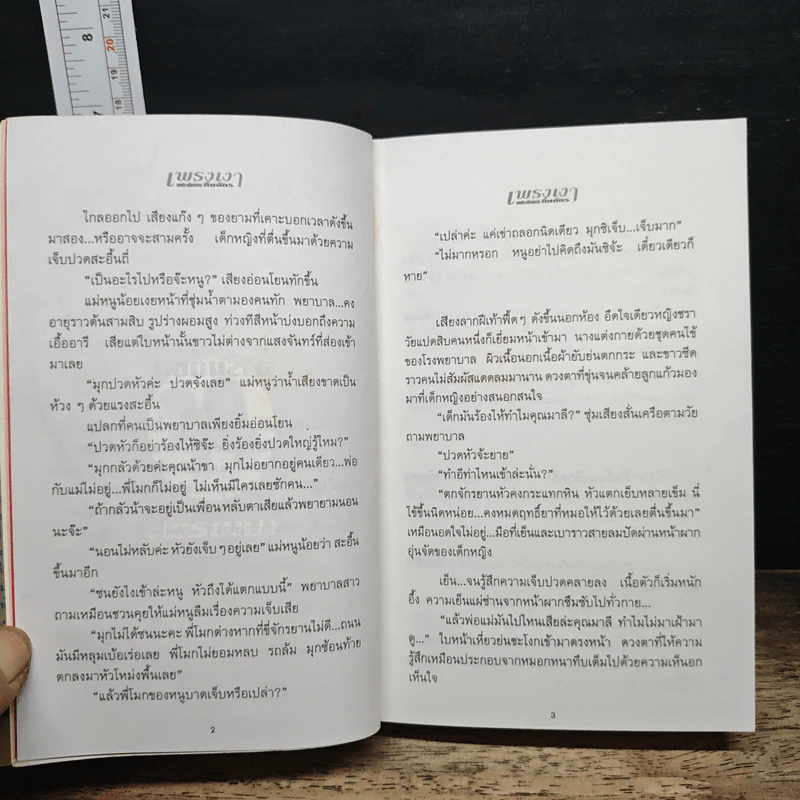 8
7
21
20
19
18
เพรงเงา
ไกลออกไป เสียงแก๊ง ๆ ของยามที่เคาะบอกเวลาดังขึ้น
มาสอง...หรืออาจจะสามครั้ง เด็กหญิงที่ตื่นขึ้นมาด้วยความ
เจ็บปวดสะอื้นถี่
“เป็นอะไรไปหรือจ๊ะหนู?” เสียงอ่อนโยนทักขึ้น
แม่หนูน้อยเงยหน้าที่ชุ่มน้ำตามองคนทัก พยาบาล...คง
อายุราวต้นสามสิบ รูปร่างผอมสูง ท่วงทีสีหน้าบ่งบอกถึงความ
เอื้ออารี เสียแต่ใบหน้านั้นขาวไม่ต่างจากแสงจันทร์ที่ส่องเข้า
มาเลย
“มุกปวดหัวค่ะ ปวดจังเลย” แม่หนูว่าน้ำเสียงขาดเป็น
ห้วง ๆ ด้วยแรงสะอื้น
แปลกที่คนเป็นพยาบาลเพียงยิ้มอ่อนโยน
“ปวดหัวก็อย่าร้องไห้ซิจ๊ะ ยิ่งร้องยิ่งปวดใหญ่รู้ไหม?”
“มุกกลัวด้วยค่ะคุณน้าขา มุกไม่อยากอยู่คนเดียว...พ่อ
กับแม่ไม่อยู่...พี่โมกก็ไม่อยู่ ไม่เห็นมีใครเลยซักคน...”
“ถ้ากลัวน้าจะอยู่เป็นเพื่อน หลับตาเสียแล้วพยายามนอน
นะจ๊ะ”
“นอนไม่หลับค่ะ หัวยังเจ็บ ๆ อยู่เลย” แม่หนูน้อยว่า สะอื้น
ขึ้นมาอีก
“ซนยังไงเข้าล่ะหนู หัวถึงได้แตกแบบนี้” พยาบาลสาว
ถามเหมือนชวนคุยให้แม่หนูลืมเรื่องความเจ็บเสีย
“มุกไม่ได้ซนนะคะ พี่โมกต่างหากที่ขี่จักรยานไม่ดี...ถนน
มันมีหลุมเบ้อเร่อเลย พี่โมกไม่ยอมหลบ รถล้ม มุกซ้อนท้าย
ตกลงมาหัวโหม่งพื้นเลย”
“แล้วพี่โมกของหนูบาดเจ็บหรือเปล่า?”
2
เพรงเงา
“เปล่าค่ะ แค่เข่าถลอกนิดเดียว มุกซิเจ็บ...เจ็บมาก”
“ไม่มากหรอก หนูอย่าไปคิดถึงมันซิจ้ะ เดี๋ยวเดียวก็
หาย”
เสียงลากฝีเท้าพื้ด ๆ ดังขึ้นนอกห้อง อึดใจเดียวหญิงชรา
วัยแปดสิบคนหนึ่งก็เยี่ยมหน้าเข้ามา นางแต่งกายด้วยชุดคนไข้
ของโรงพยาบาล ผิวเนื้อนอกเนื้อผ้ายับย่นตกกระ และขาวซีด
ราวคนไม่สัมผัสแดดลมมานาน ดวงตาที่ขุ่นจนคล้ายลูกแก้วมอง
มาที่เด็กหญิงอย่างสนอกสนใจ
“เด็กมันร้องไห้ทำไมคุณมาลี?” ซุ่มเสียงสั่นเครือตามวัย
ถามพยาบาล
“ปวดหัวจ้ะยาย”
“ทำอีท่าไหนเข้าล่ะนั่น?”
“ตกจักรยานหัวคงกระแทกหิน หัวแตกเย็บหลายเข็ม นี่
ไข้ขึ้นนิดหน่อย...คงหมดฤทธิ์ยาที่หมอให้ไว้ด้วยเลยตื่นขึ้นมา”
เหมือนอดใจไม่อยู่...มือที่เย็นและเบาราวสายลมปัดผ่านหน้าผาก
อุ่นจัดของเด็กหญิง
เย็น...จนรู้สึกความเจ็บปวดคลายลง เนื้อตัวก็เริ่มหนัก
อึ้ง ความเย็นแผ่ซ่านจากหน้าผากซึมซับไปทั่วกาย...
“แล้วพ่อแม่มันไปไหนเสียล่ะคุณมาลี ทำไมไม่มาเฝ้ามา
ดู...” ใบหน้าเหี่ยวย่นชะโงกเข้ามาตรงหน้า ดวงตาที่ให้ความ
รู้สึกเหมือนประกอบจากหมอกหนาทึบเต็มไปด้วยความเห็นอก
เห็นใจ
3